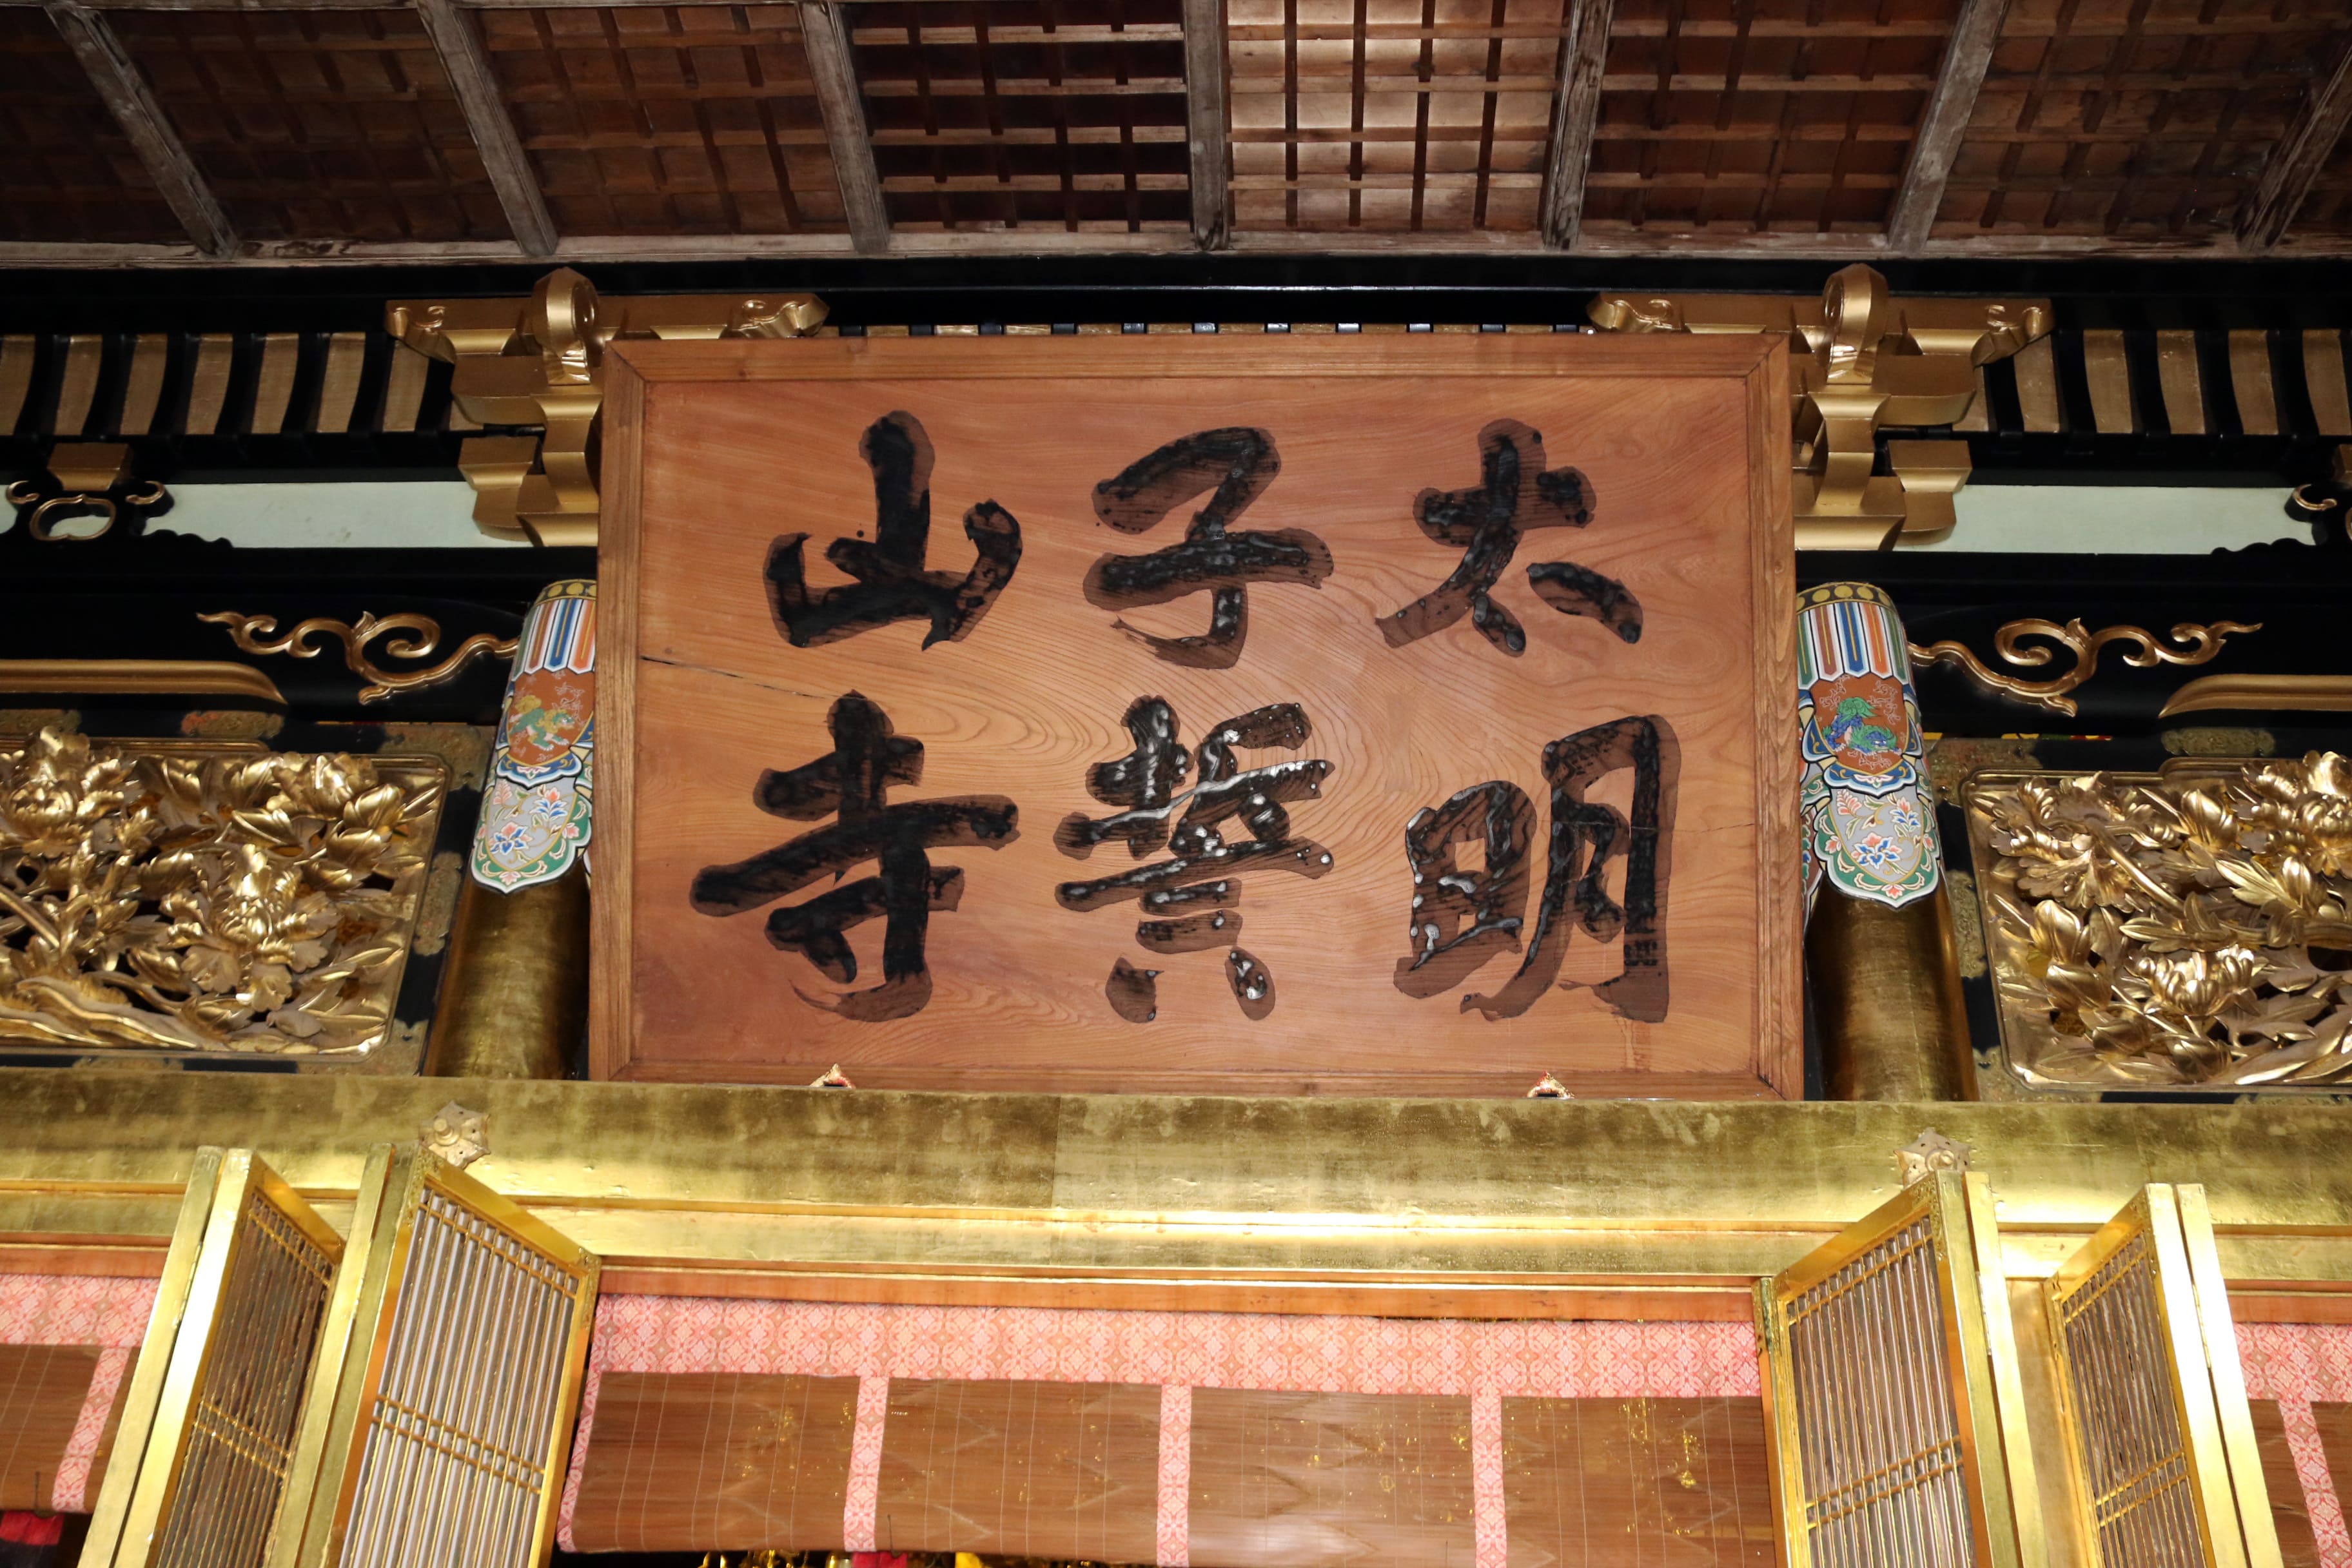 太子山
明誓寺